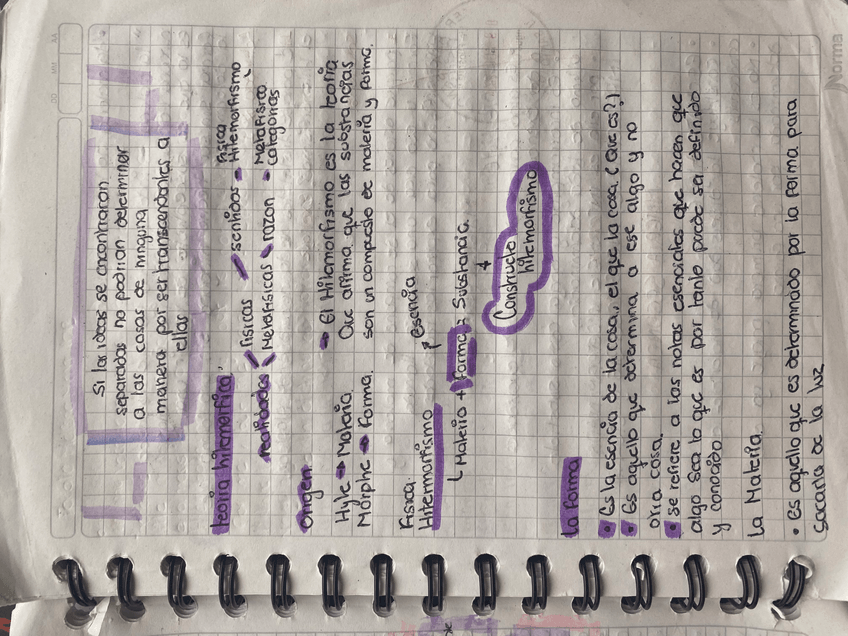 Si las ideas se encontraran
separadas no podrían determinar
a las cosas de ninguna
manera por ser transcendentes a
ellas
teoría hilemorfica.
realidades
Fisicas
sentidos
Fisica
Hilemorfismo
Metafisicas
razon
Metafisica
categorias
Origen
Hyle → Materia
Morphe → Forma.
→ El Hilemorfismo es la teoria
Que afirma que las substancias
son un compuesto de materia y forma.
Fisica.
Hilermorfismo
esencia
Materia + Forma = Substancia.
Constructo
hilemorfismo
La forma
Es la esencia de la cosa, el que la cosa. (Que es?)
Es aquello que determina a ese algo y no
otra cosa.
Se refiere a las notas esenciales que hacen que
algo sea lo que es por tanto puede ser definido
y conocido
La Materia.
• Es aquello que es determinado por la forma para
sacarla de la luz
Norma
DD MM AA